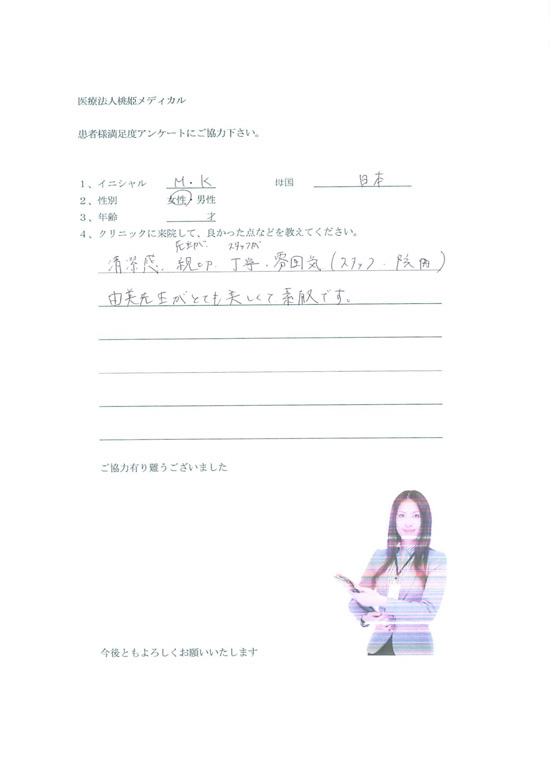 医療法人桃姫メディカル
患者様満足度アンケートにご協力下さい。
1、イニシャル M・K 母国 日本
2、性別 女性・男性
3、年齢 才
4、クリニックに来院して、良かった点などを教えてください。
先生が スタッフが
清潔感、親切、丁寧・雰囲気(スタッフ・院内)
由美先生がとても美しくて素敵です。
ご協力有り難うございました
今後ともよろしくお願いいたします